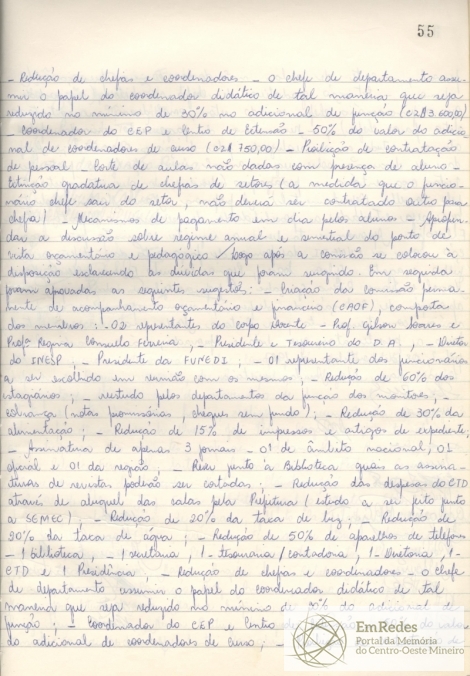 55
- Redução de chefias e coordenadores - o chefe de departamento assu-
mir o papel do coordenador didático de tal maneira que seja
reduzido no mínimo de 30% no adicional de função (CZ$ 3.600,00)
- Coordenador do CEP e Centro de Extensão - 50% do valor do adicio-
nal de coordenadores de curso (CZ$ 750,00) - Proibição de contratação
de pessoal - Corte de aulas não dadas com presença de aluno -
Extinção gradativa de chefias de setores (a medida que o funcio-
nário chefe sair do setor, não deveria ser contratado outro para
chefia) - Mecanismos de pagamento em dia pelos alunos - Aprofun-
dar a discussão sobre regime anual e semestral do ponto de
vista orçamentário e pedagógico. Logo após a comissão se colocou à
disposição esclarecendo as dúvidas que foram surgindo. Em seguida
foram aprovadas as seguintes sugestões: - Criação da comissão perma-
nente de acompanhamento orçamentário e financeiro (CAOF), composta
dos membros: - 02 representantes do corpo docente - Prof. Gilson Soares e
Profª Regina Consuelo Ferreira, - Presidente e Tesoureiro do D.A., - Diretor
do INESP, - Presidente da FUNEDI; - 01 representante dos funcionários
a ser escolhido em reunião com os mesmos; - Redução de 60% dos
estagiários; - estudo pelos departamentos da função dos monitores; -
cobrança (notas promissórias, cheques sem fundo); - Redução de 30% da
alimentação; - Redução de 15% de impressos e artigos de expediente;
- Assinatura de apenas 3 jornais - 01 de âmbito nacional, 01
oficial e 01 da região; - Rever junto à Biblioteca quais as assina-
turas de revistas poderão ser cortadas; - Redução das despesas do CTD
através de aluguel das salas pela Prefeitura (estudo a ser feito junto
a SEMEC); - Redução de 20% da taxa de luz; - Redução de
20% da taxa de água; - Redução de 50% de aparelhos de telefone
- 1 biblioteca, - 1 secretaria, 1 - tesouraria/contadoria, 1 - Diretoria, 1 -
CTD e 1 Presidência; - Redução de chefias e coordenadores - o chefe
de departamento assumir o papel do coordenador didático de tal
maneira que seja reduzido no mínimo de 30% do adicional de
função; - Coordenador do CEP e Centro de valor
do adicional de coordenadores de curso; -
EmRedes
Portal da Memória
do Centro-Oeste Mineiro